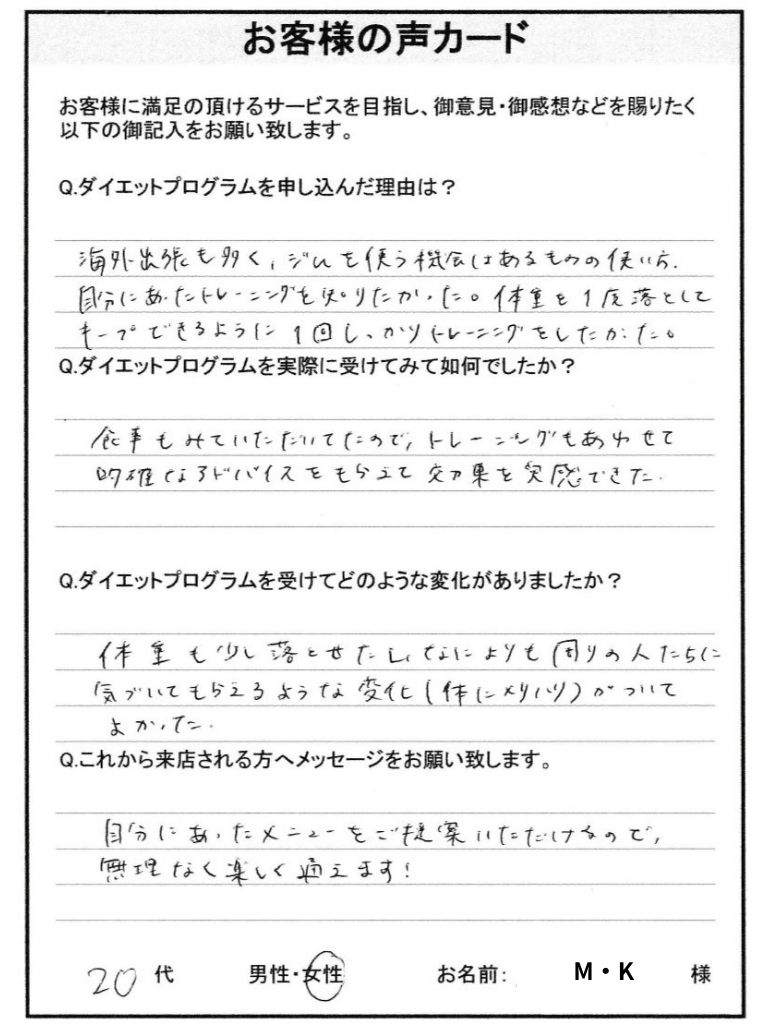 お客様の声カード
お客様に満足の頂けるサービスを目指し、御意見・御感想などを賜りたく
以下の御記入をお願い致します。
Q.ダイエットプログラムを申し込んだ理由は？
海外出張も多く、ジムを使う機会はあるものの使い方、
自分にあったトレーニングを知りたかった。体重を1度落として
キープできるように1回しっかりトレーニングをしたかった。
Q.ダイエットプログラムを実際に受けてみて如何でしたか？
食事もみていただいてたので、トレーニングもあわせて
的確なアドバイスをもらえて効果を実感できた。
Q.ダイエットプログラムを受けてどのような変化がありましたか？
体重も少し落とせたし、なによりも周りの人たちに
気づいてもらえるような変化(体にメリハリ)がついて
よかった。
Q.これから来店される方へメッセージをお願い致します。
自分にあったメニューをご提案いただけるので、
無理なく楽しく通えます!
20代 男性・女性 お名前: M・K 様